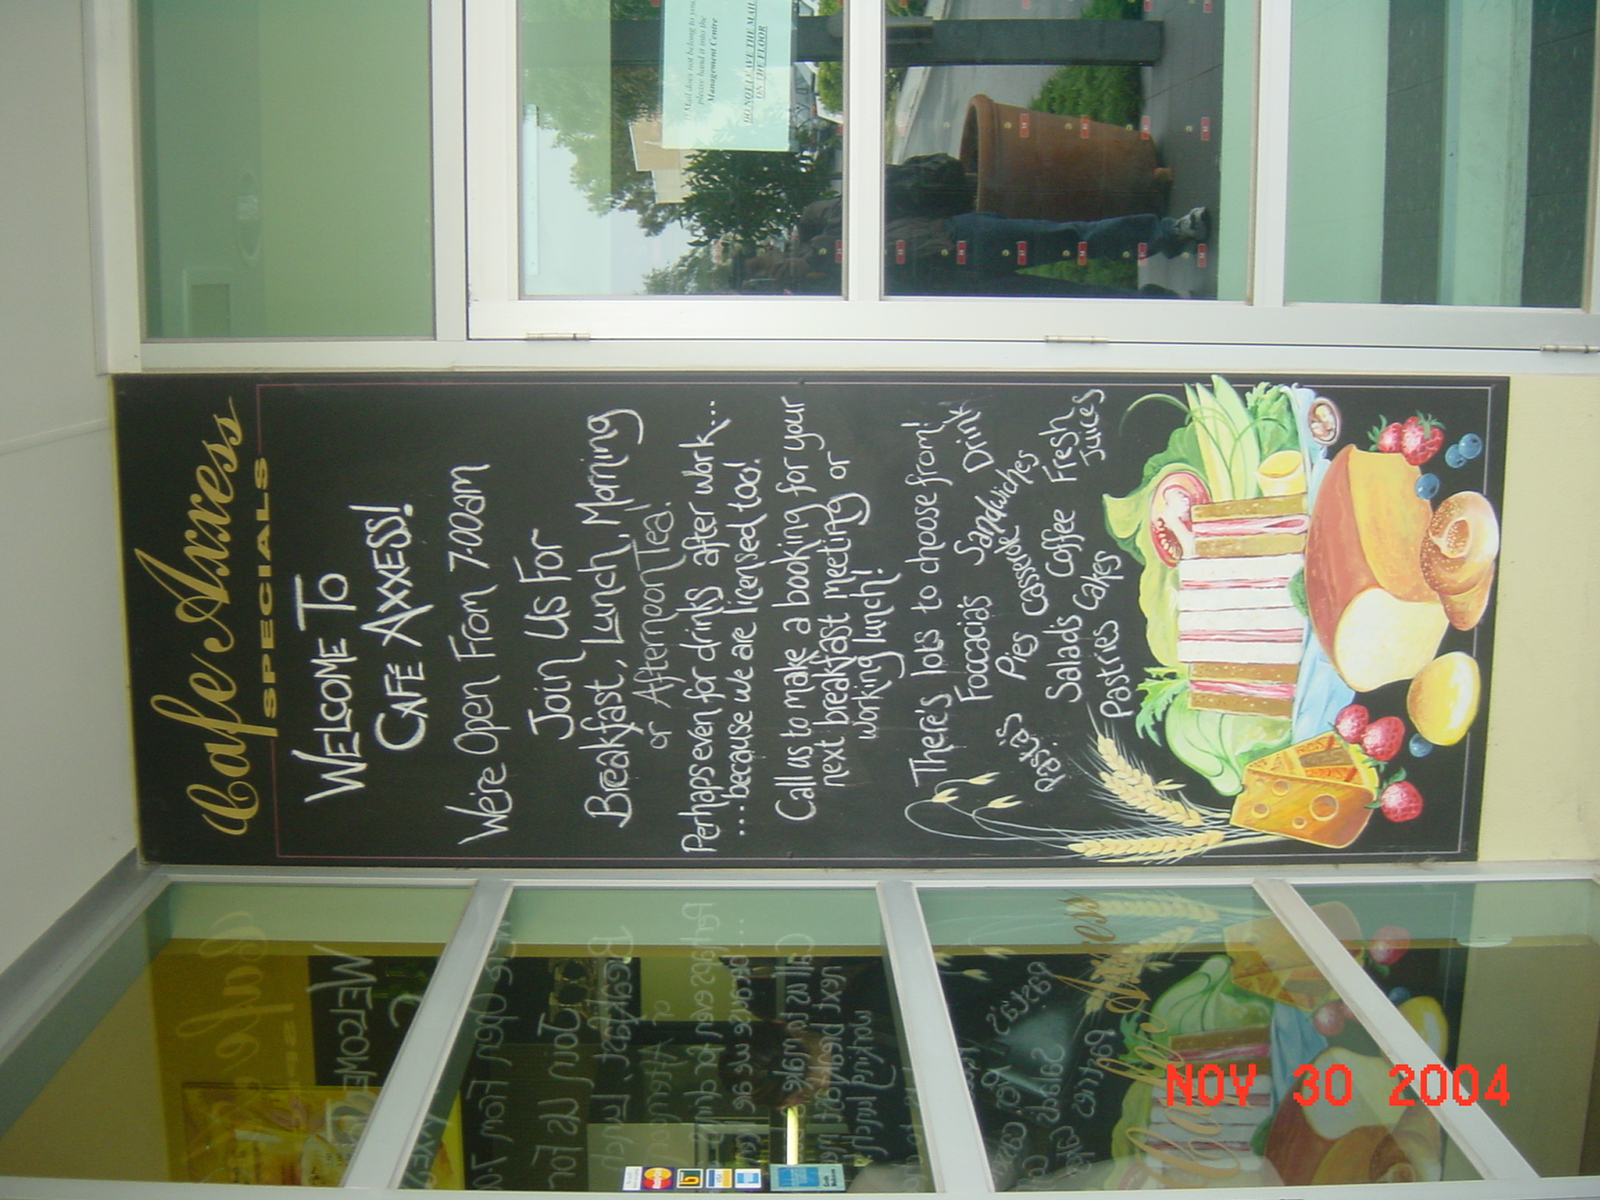 Cafe Axxess
SPECIALS
WELCOME TO
CAFE AXXESS!
We're Open From 7.00am
Join Us For
Breakfast, Lunch, Morning
or Afternoon Tea!
Perhaps even for drinks after work...
...because we are licensed too!
Call us to make a booking for your
next breakfast meeting or
working lunch!
There's lots to choose from!
Pasta's Foccacia's Sandwiches Drink
Pies Casserole
Salads Coffee Fresh Juices
Pastries Cakes
Mail does not belong to you
please hand it into the
Management Centre
DO NOT LEAVE THE MAIL
ON THE FLOOR
NOV 30 2004